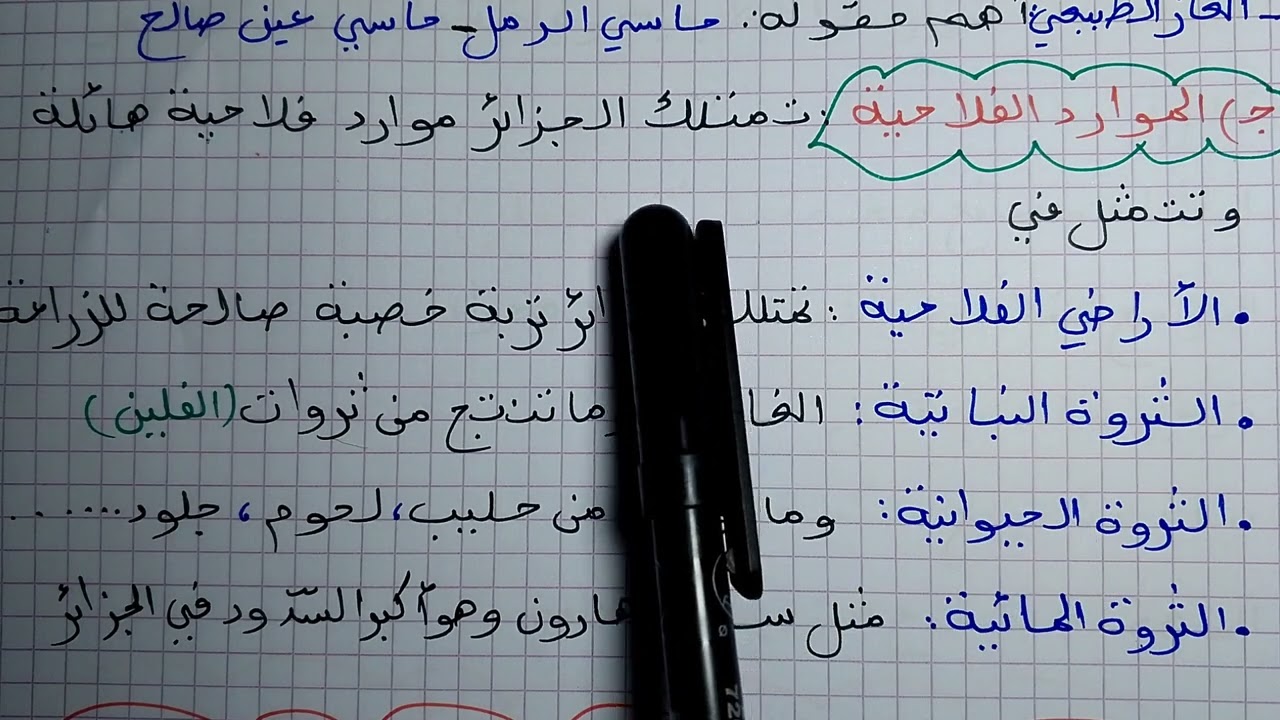 - الغاز الطبيعي: أهم حقوله: حاسي الرمل - حاسي عين صالح
ج) الموارد الفلاحية: تمتلك الجزائر موارد فلاحية هائلة
وتتمثل في
• الأراضي الفلاحية: تمتلك ائر تربة خصبة صالحة للزراعة
• الثروة النباتية: ما تنتج من ثروات (الفلين)
• الثروة الحيوانية: وما من حليب، لحوم، جلود......
• الثروة المائية: مثل هارون وهو أكبر السّدود في الجزائر
72